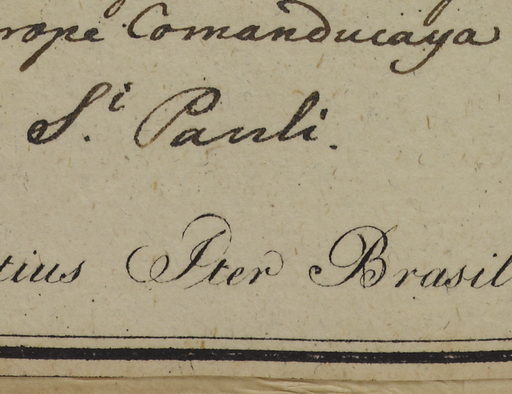 rope Comanducaya
S.i Pauli.
tius Iter Brasil